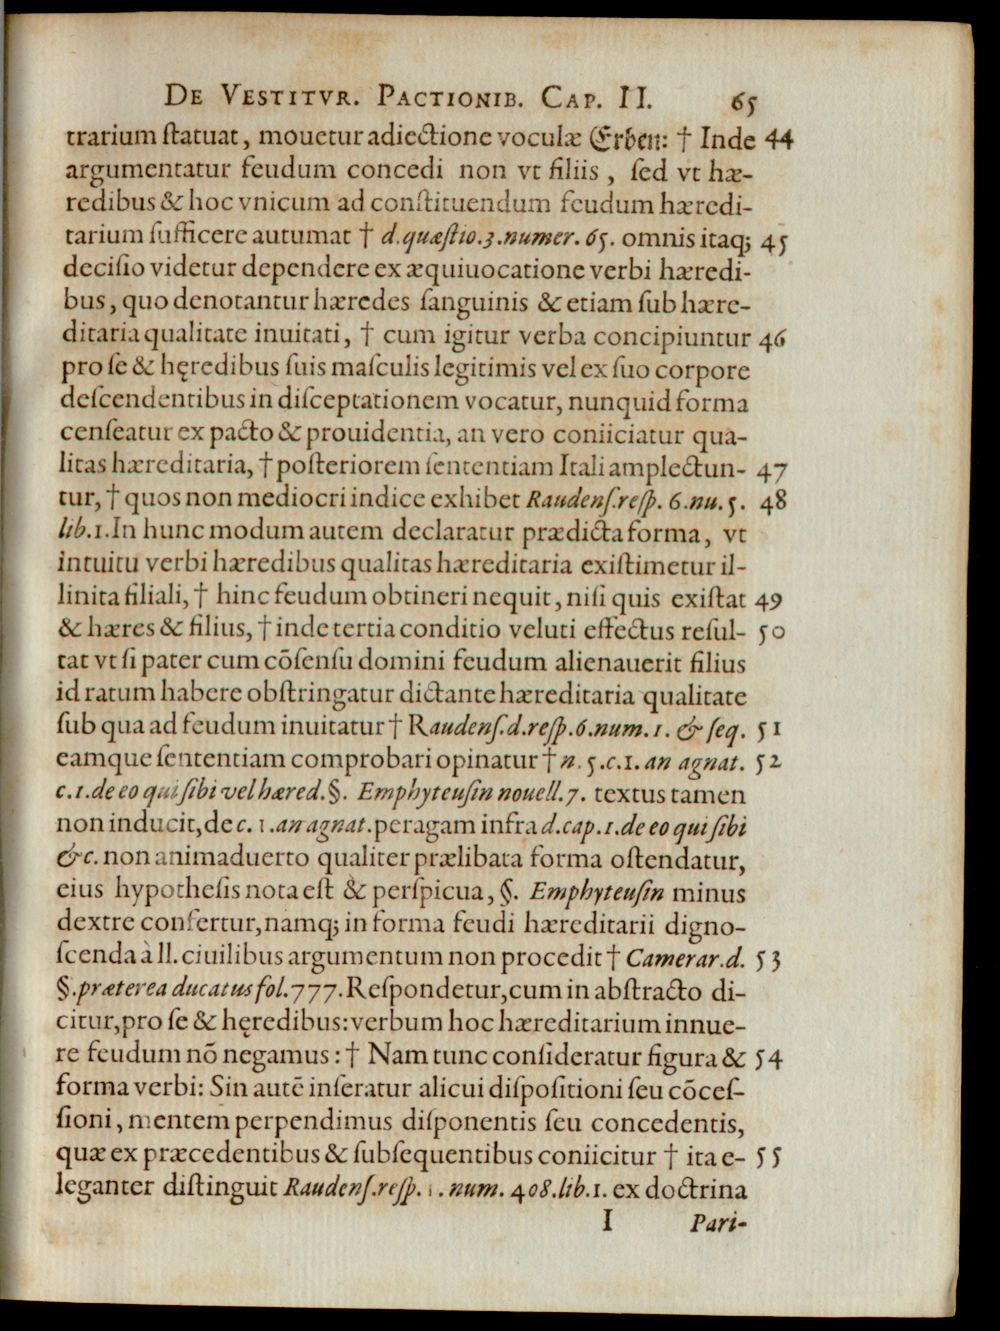 DE VESTITVR. PACTIONIB. CAP. II. 65
trarium ſtatuat, mouetur adiectione voculæ Erben: † Inde 44
argumentatur feudum concedi non vt filiis, ſed vt hæ-
redibus & hoc vnicum ad conſtituendum feudum hæredi-
tarium ſufficere autumat † d.quæſtio.3.numer. 65. omnis itaq; 45
deciſio videtur dependere ex æquiuocatione verbi hæredi-
bus, quo denotantur hæredes ſanguinis & etiam ſub hære-
ditaria qualitate inuitati, † cum igitur verba concipiuntur 46
pro ſe & hęredibus ſuis maſculis legitimis vel ex ſuo corpore
deſcendentibus in diſceptationem vocatur, nunquid forma
cenſeatur ex pacto & prouidentia, an vero coniiciatur qua-
litas hæreditaria, † poſteriorem ſententiam Itali amplectun- 47
tur, † quos non mediocri indice exhibet Raudenſ.reſp. 6.nu. 5. 48
lib.1.In hunc modum autem declaratur prædicta forma, vt
intuitu verbi hæredibus qualitas hæreditaria exiſtimetur il-
linita filiali, † hinc feudum obtineri nequit, niſi quis exiſtat 49
& hæres & filius, † inde tertia conditio veluti effectus reſul- 50
tat vt ſi pater cum cõſenſu domini feudum alienauerit filius
id ratum habere obſtringatur dictante hæreditaria qualitate
ſub qua ad feudum inuitatur † Raudenſ.d.reſp.6.num. 1. & ſeq. 51
eamque ſententiam comprobari opinatur † n. 5.c.1. an agnat. 52
c.1.de eo qui ſibi vel hæred.§. Emphyteuſin nouell.7. textus tamen
non inducit, de c. 1.an agnat.peragam infra d.cap.1.de eo qui ſibi
&c. non animaduerto qualiter prælibata forma oſtendatur,
eius hypotheſis nota eſt & perſpicua, §. Emphyteuſin minus
dextre confertur, namq; in forma feudi hæreditarii digno-
ſcenda à ll. ciuilibus argumentum non procedit † Camerar.d. 53
§.præterea ducatus fol.777. Reſpondetur, cum in abſtracto di-
citur, pro ſe & hęredibus: verbum hoc hæreditarium innue-
re feudum nõ negamus: † Nam tunc conſideratur figura & 54
forma verbi: Sin autẽ inſeratur alicui diſpoſitioni ſeu cõceſ-
ſioni, mentem perpendimus diſponentis ſeu concedentis,
quæ ex præcedentibus & ſubſequentibus coniicitur † ita e- 55
leganter diſtinguit Raudenſ.reſp. 1. num. 408.lib.1. ex doctrina
I Pari-